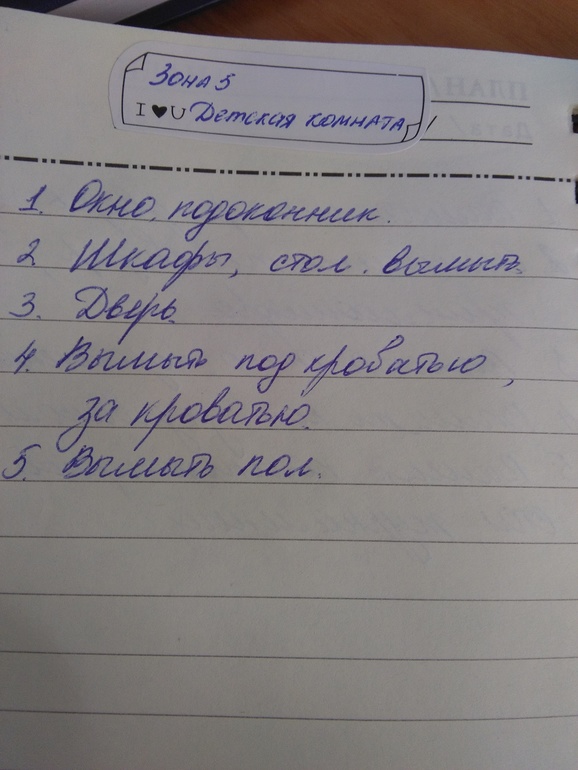 Зона 5
I ♥ U Детская комната
1. Окно, подоконник.
2. Шкафы, стол. вымыть.
3. Дверь.
4. Вымыть под кроватью,
за кроватью.
5. Вымыть пол.
ПЛАН/
Дата/